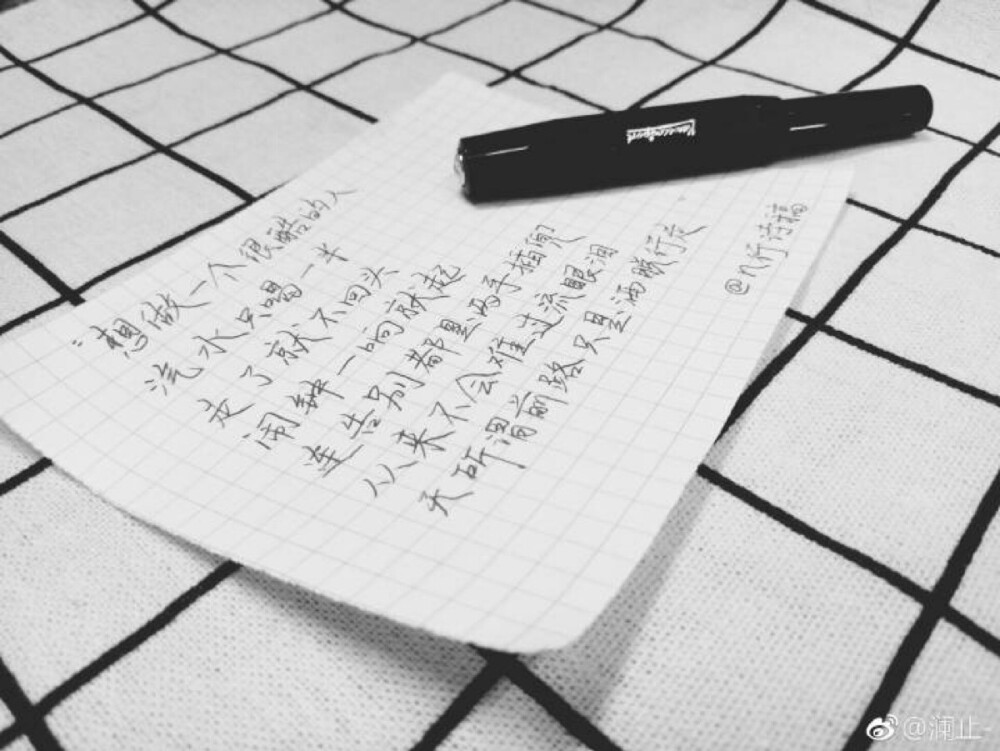 “想做一个很酷的人
汽水只喝一半
走了就不回头
闹钟一响就起
连告别都是两手插兜
从来不会难过流眼泪
无所谓前路只是洒脱行走
@n行诗稿
@澜止-